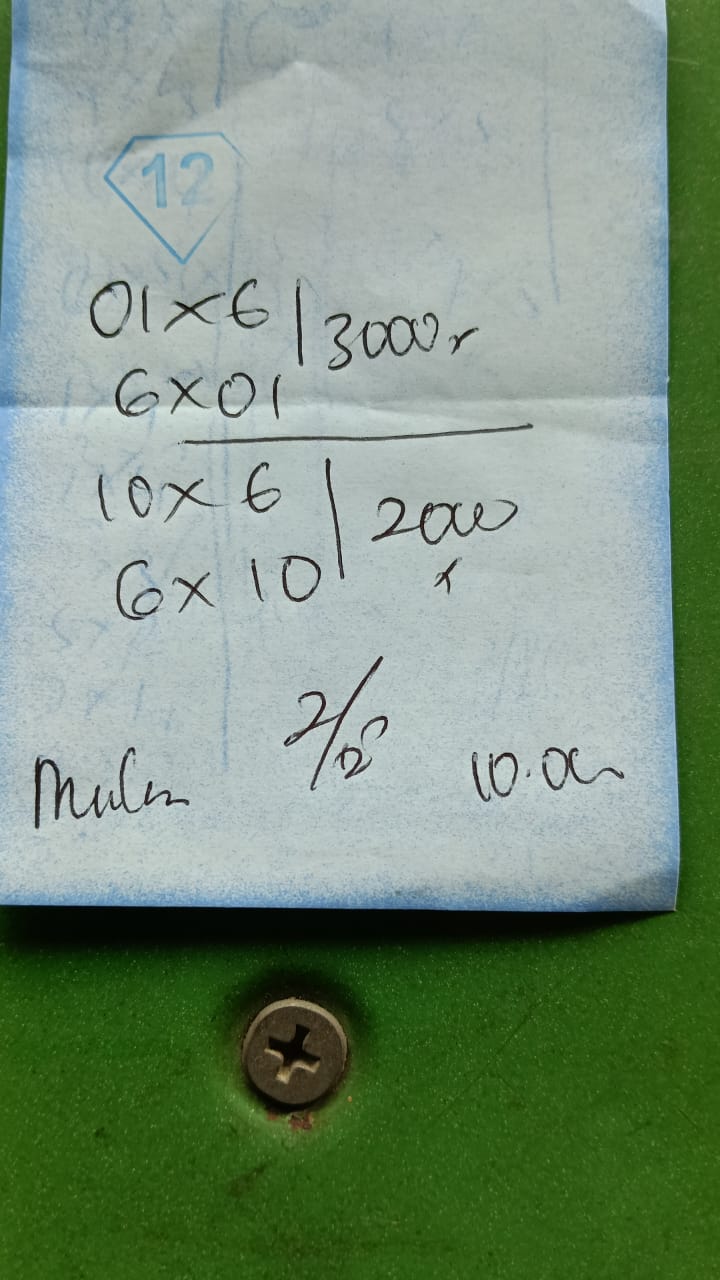 12
01×6 | 3000
6×01
10×6 | 2000
6×10
2/
10.00